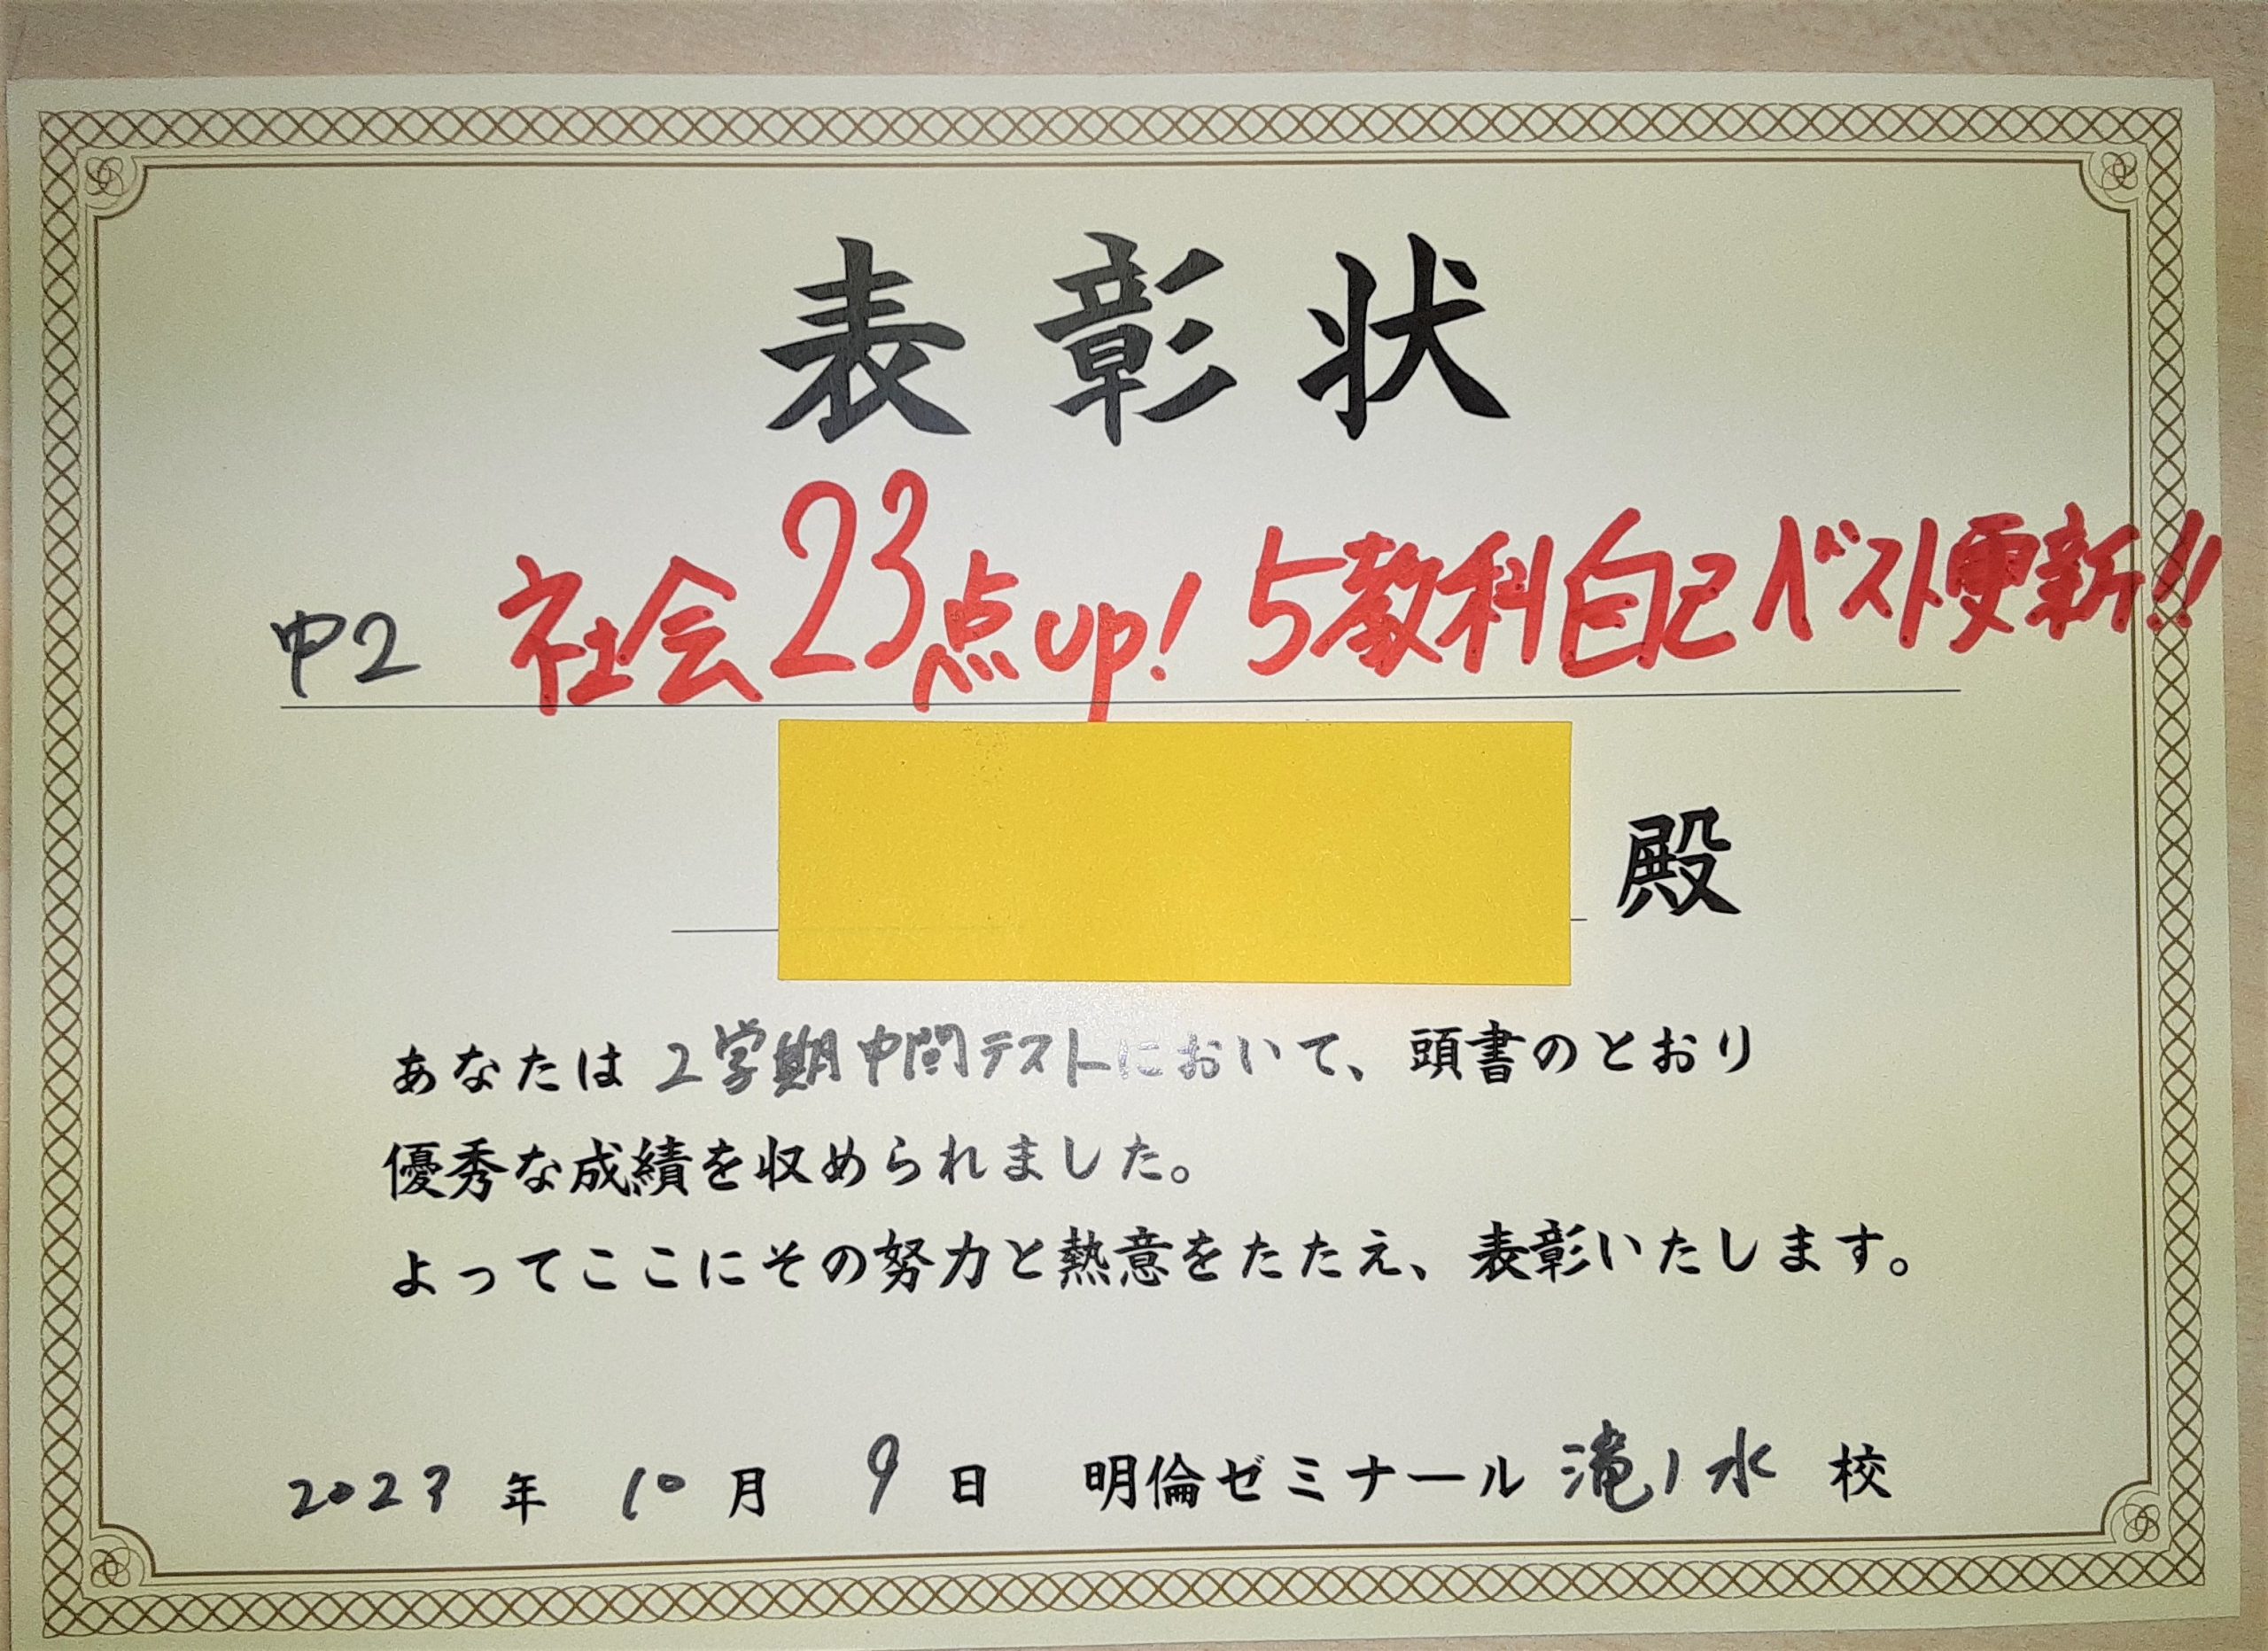 表彰状
中2 社会23点up! 5教科自己ベスト更新!!
殿
あなたは2学期中間テストにおいて、頭書のとおり
優秀な成績を収められました。
よってここにその努力と熱意をたたえ、表彰いたします。
2023年10月9日 明倫ゼミナール滝ノ水校